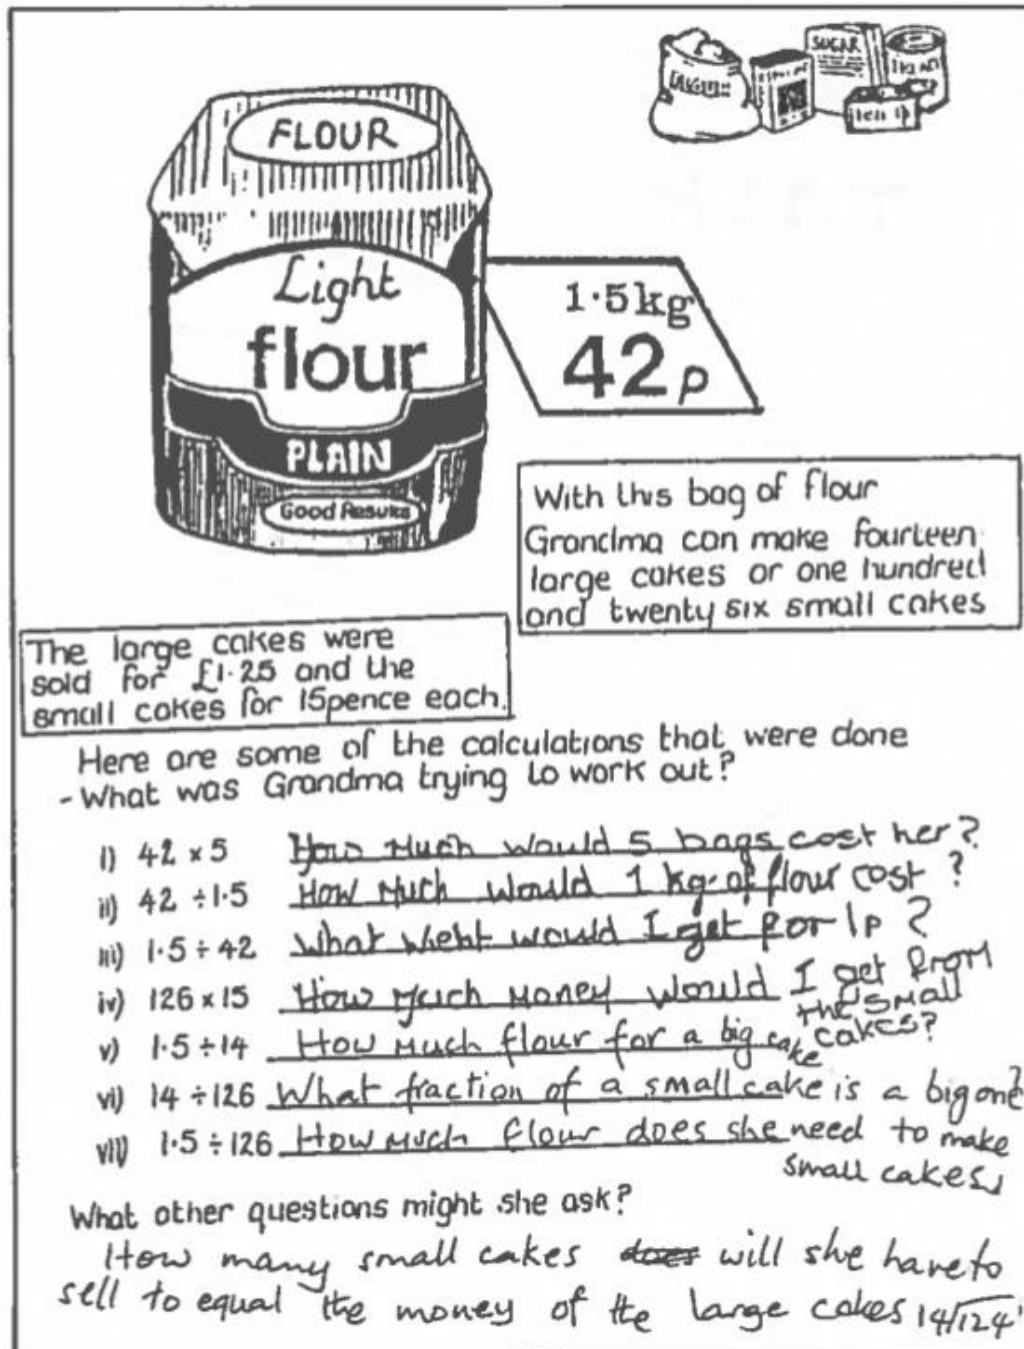 SUGAR
FLOUR
Light
flour
PLAIN
Good Results
1.5kg
42p
With this bag of flour
Grandma can make fourteen
large cakes or one hundred
and twenty six small cakes
The large cakes were
sold for £1.25 and the
small cakes for 15pence each.
Here are some of the calculations that were done
- What was Grandma trying to work out?
i) 42 x 5 How Much would 5 bags cost her?
ii) 42 ÷ 1.5 How Much would 1 kg. of flour cost ?
iii) 1.5 ÷ 42 What wieht would I get for 1p ?
iv) 126 x 15 How Much Money would I get from
the small
cakes?
v) 1.5 ÷ 14 How Much flour for a big cake
vi) 14 ÷ 126 What fraction of a small cake is a big one?
vii) 1.5 ÷ 126 How Much flour does she need to make
small cakes
What other questions might she ask?
How many small cakes does will she have to
sell to equal the money of the large cakes 14/124